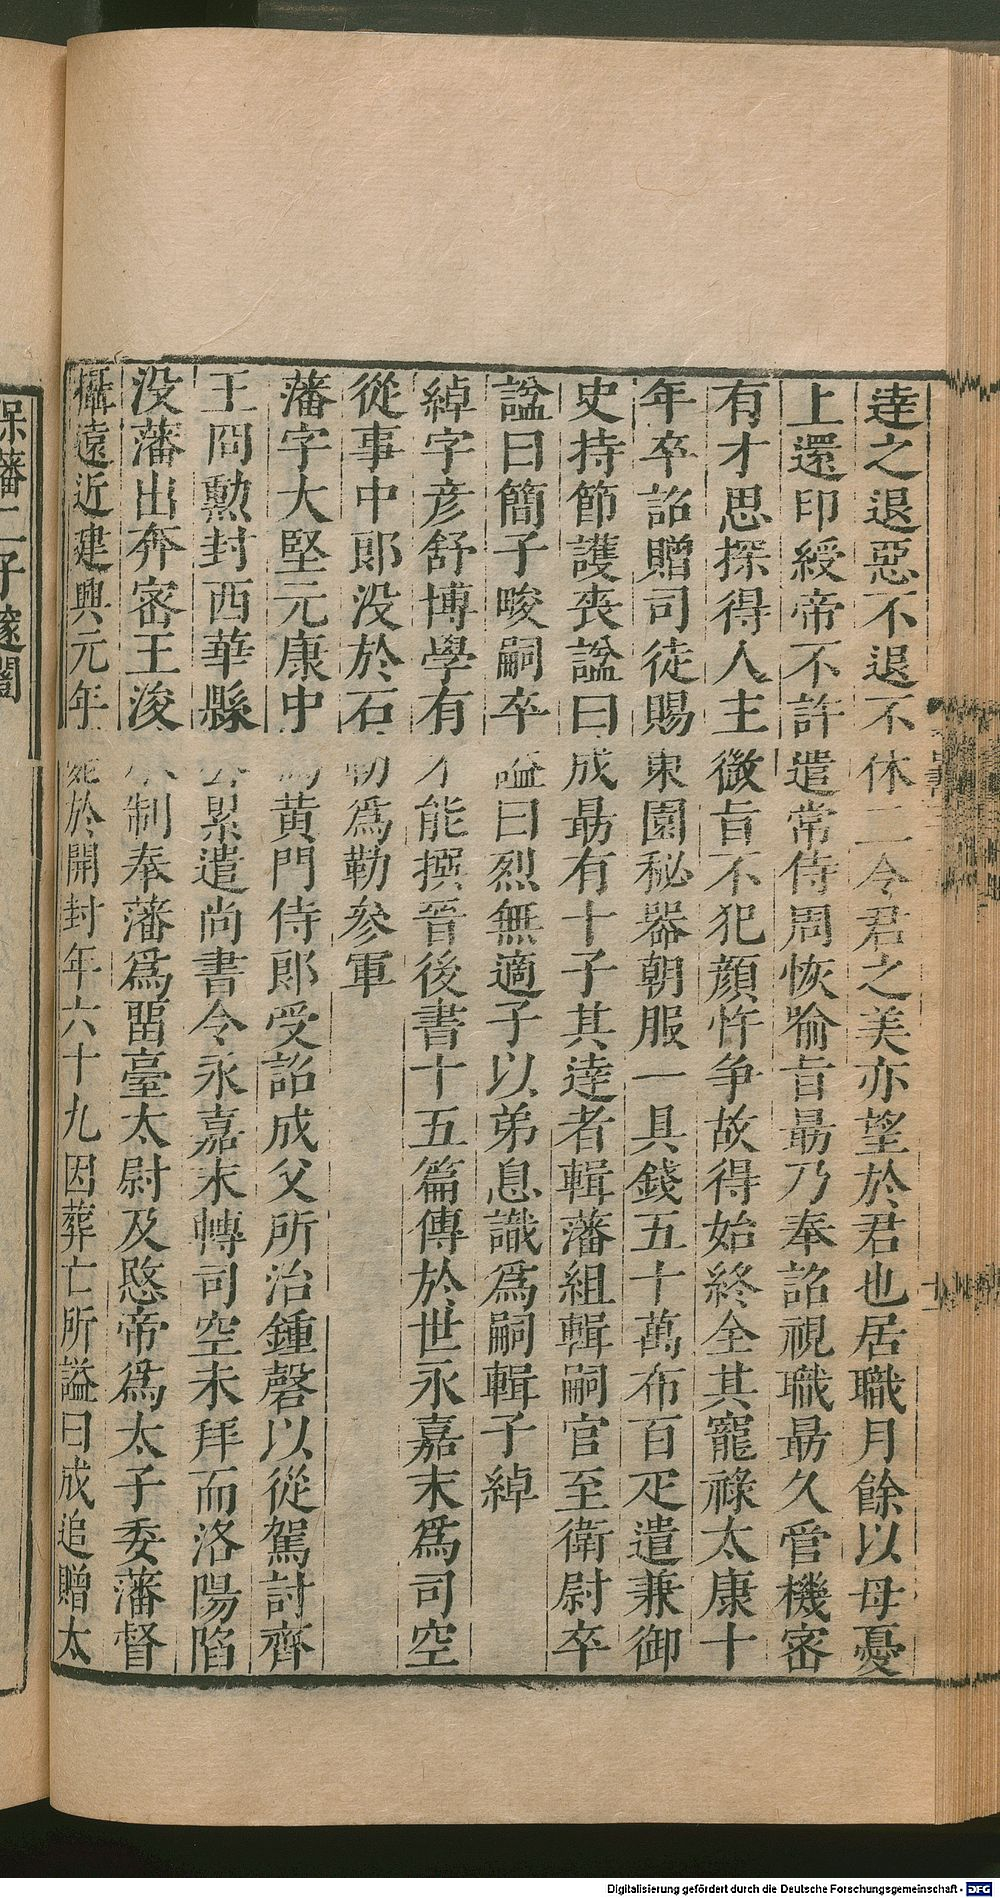 逹之退惡不退不休二令君之美亦望於君也居職月餘以母憂
上還印綬帝不許遣常侍周恢喻旨朂乃奉詔視職朂久管機密
有才思探得人主微旨不犯顏忤爭故得始終全其寵祿太康十
年卒詔贈司徒賜東園秘器朝服一具錢五十萬布百疋遣兼御
史持節護喪諡曰成朂有十子其逹者輯藩組輯嗣官至衛尉卒
諡曰簡子畯嗣卒諡曰烈無適子以弟息識爲嗣輯子綽
綽字彦舒博學有才能撰晉後書十五篇傳於世永嘉末爲司空
從事中郎没於石勒爲勒叅軍
藩字大堅元康中爲黄門侍郎受詔成父所治鍾磬以從駕討齊
王冏勲封西華縣公累遣尚書令永嘉末轉司空未拜而洛陽陷
没藩出奔密王浚承制奉藩爲畱臺太尉及愍帝爲太子委藩督
攝遠近建興元年薨於開封年六十九因葬亡所諡曰成追贈太
保藩二子邃闓
Digitalisierung gefördert durch die Deutsche Forschungsgemeinschaft - DFG